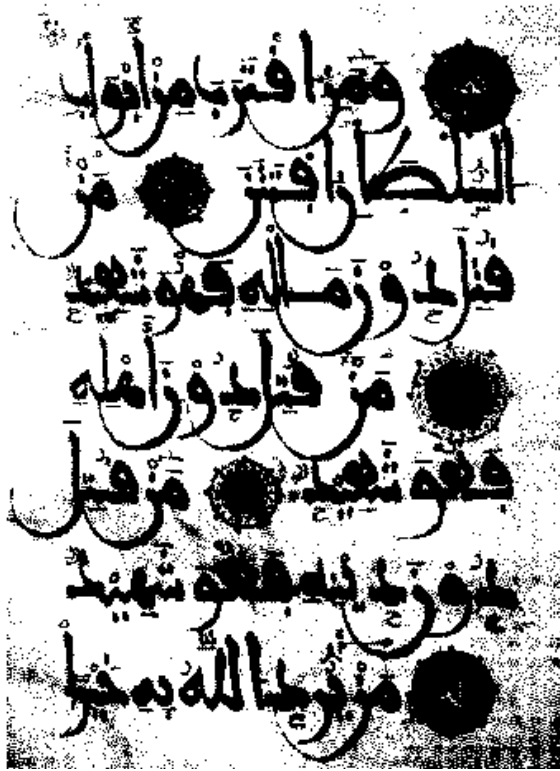 ومن اقترب من أبواب
السلطان افتتن من
قتل دون ماله فهو شهيد
من قتل دون أهله
فهو شهيد من قتل
دون دينه فهو شهيد
من يرد الله به خيرا